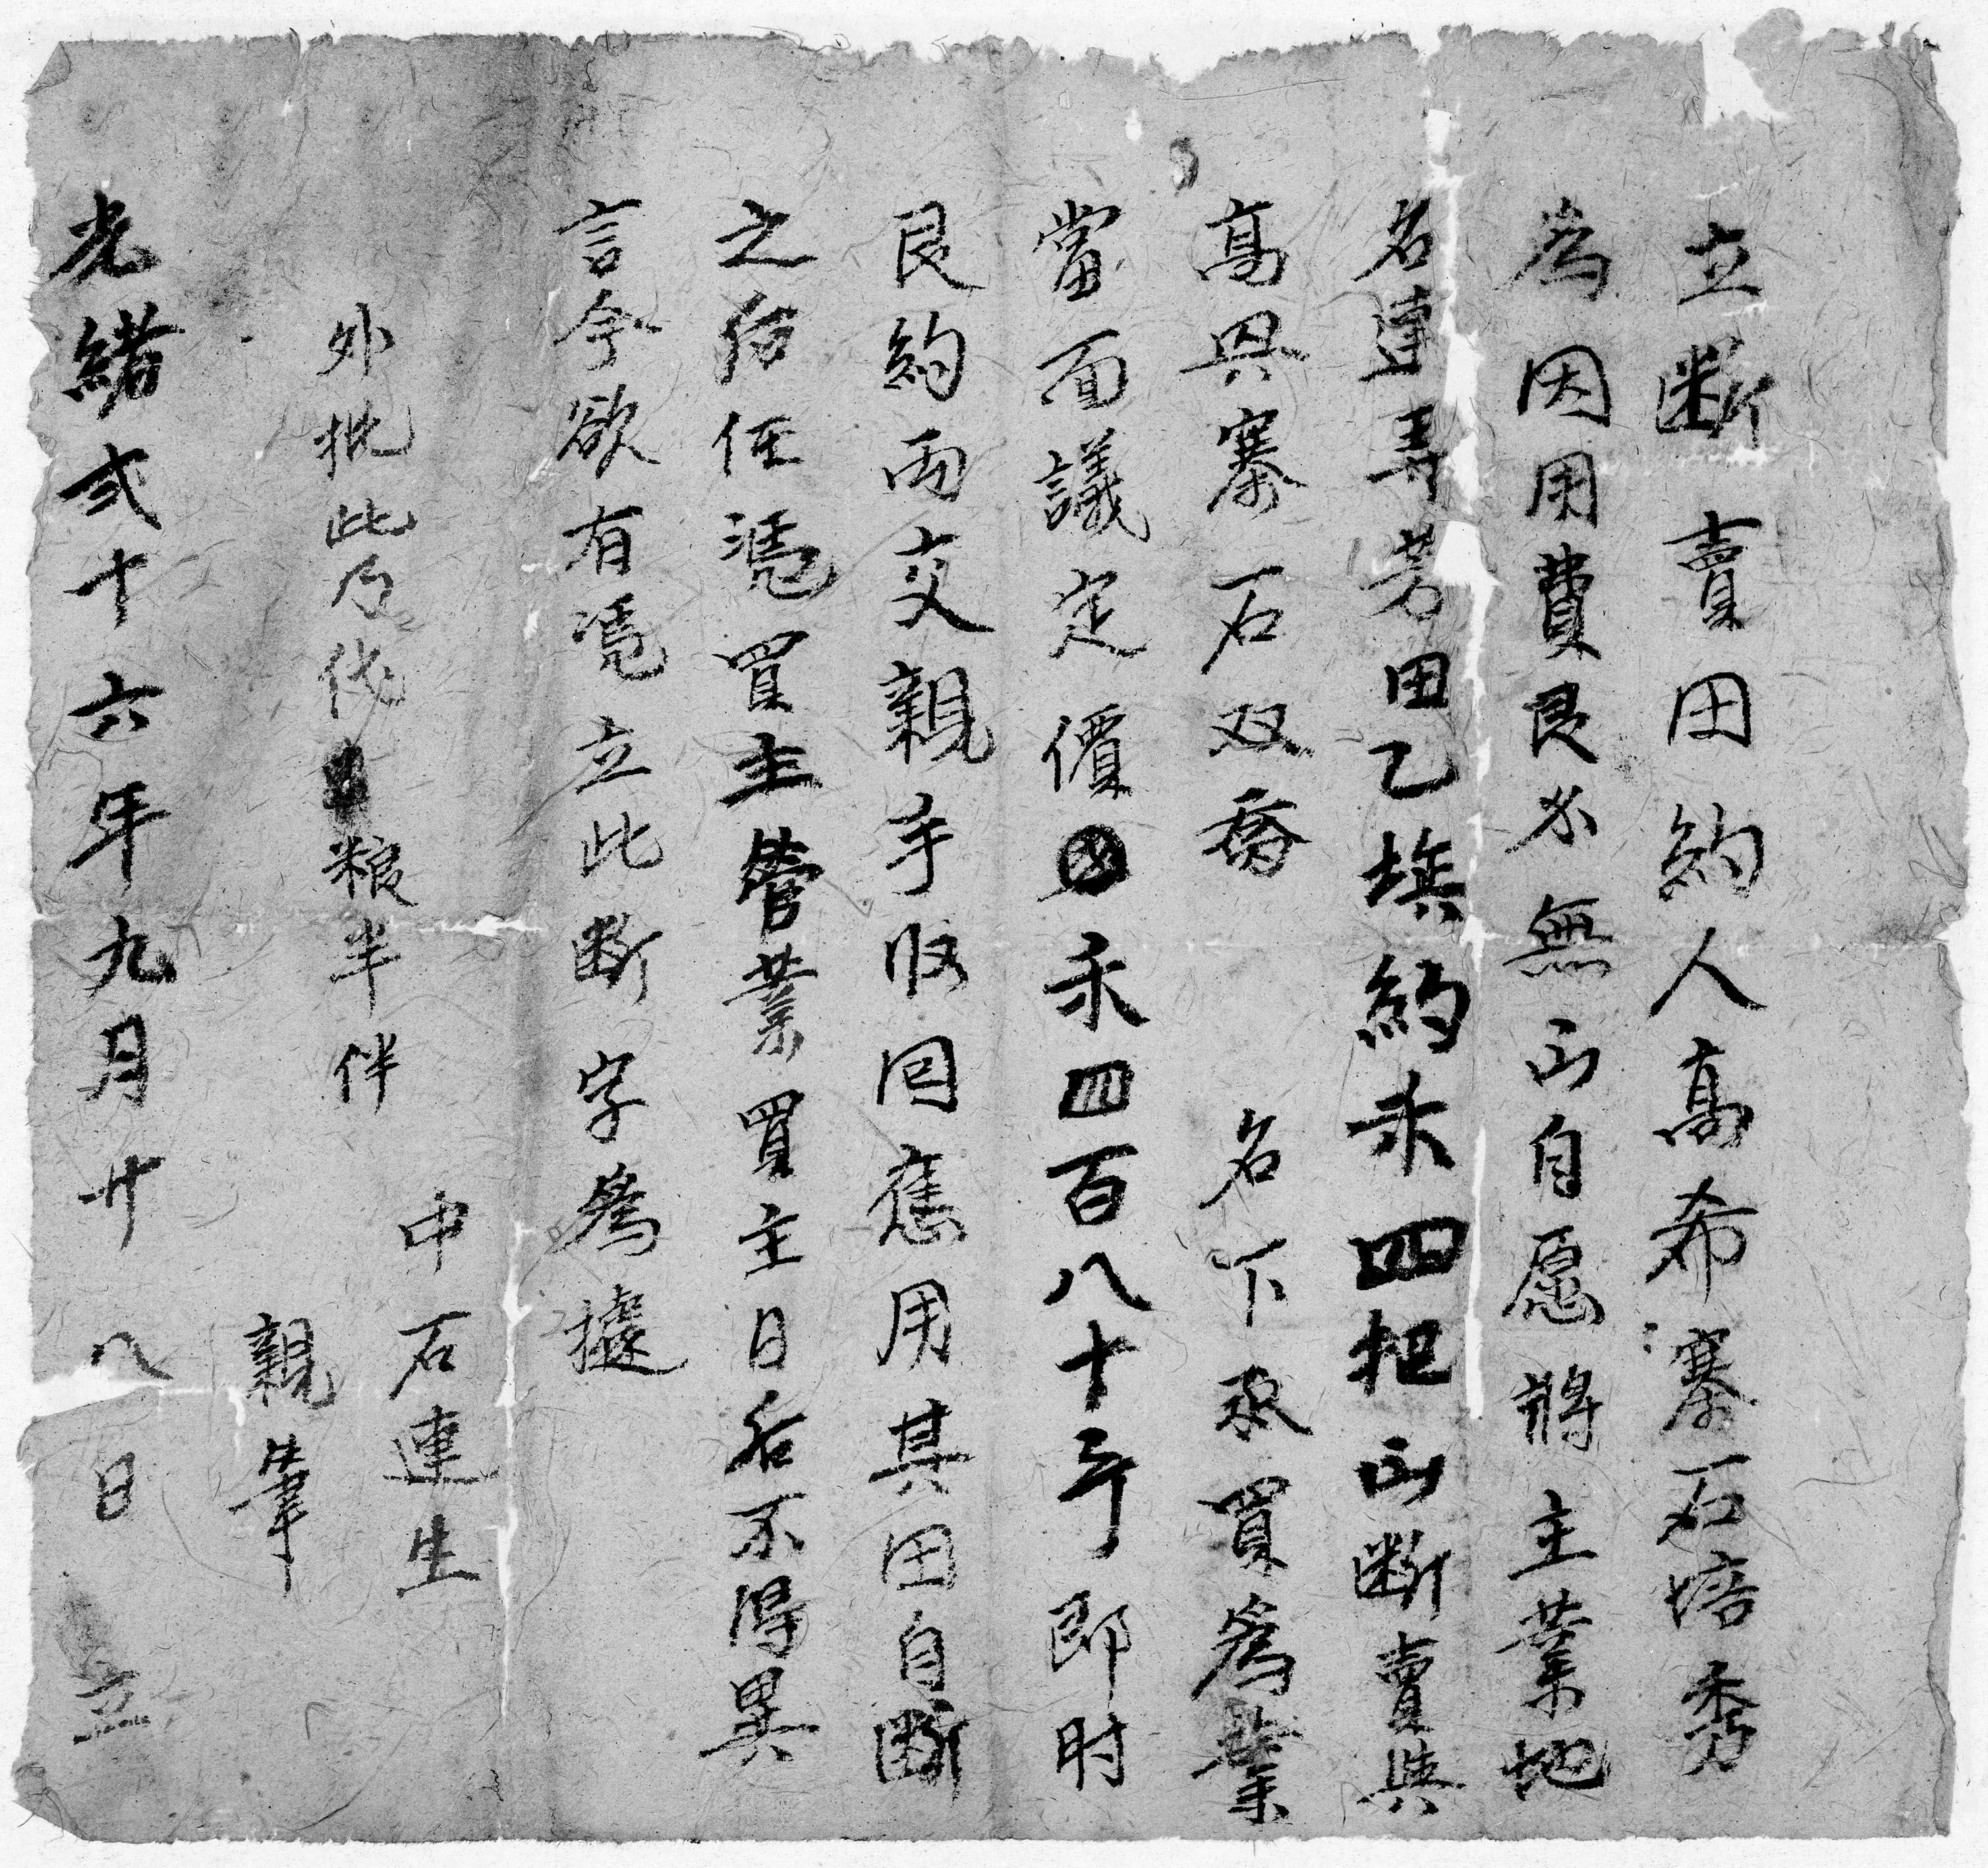 立断賣田約人高希寨石培秀
為因用費艮必無山自愿將主業地
名連㝵芳田乙坵約禾四把山断賣與
高具寨石双喬 名下承買為業
當面議定價禾四百八十斤即时
艮約両交親手收囘應用其田自断
之后任凴買主管業買主日后不得異
言今欲有凴立此断字為據
中石連生
外批此乃代粮半伴
親筆
光緒弍十六年九月廿八日立